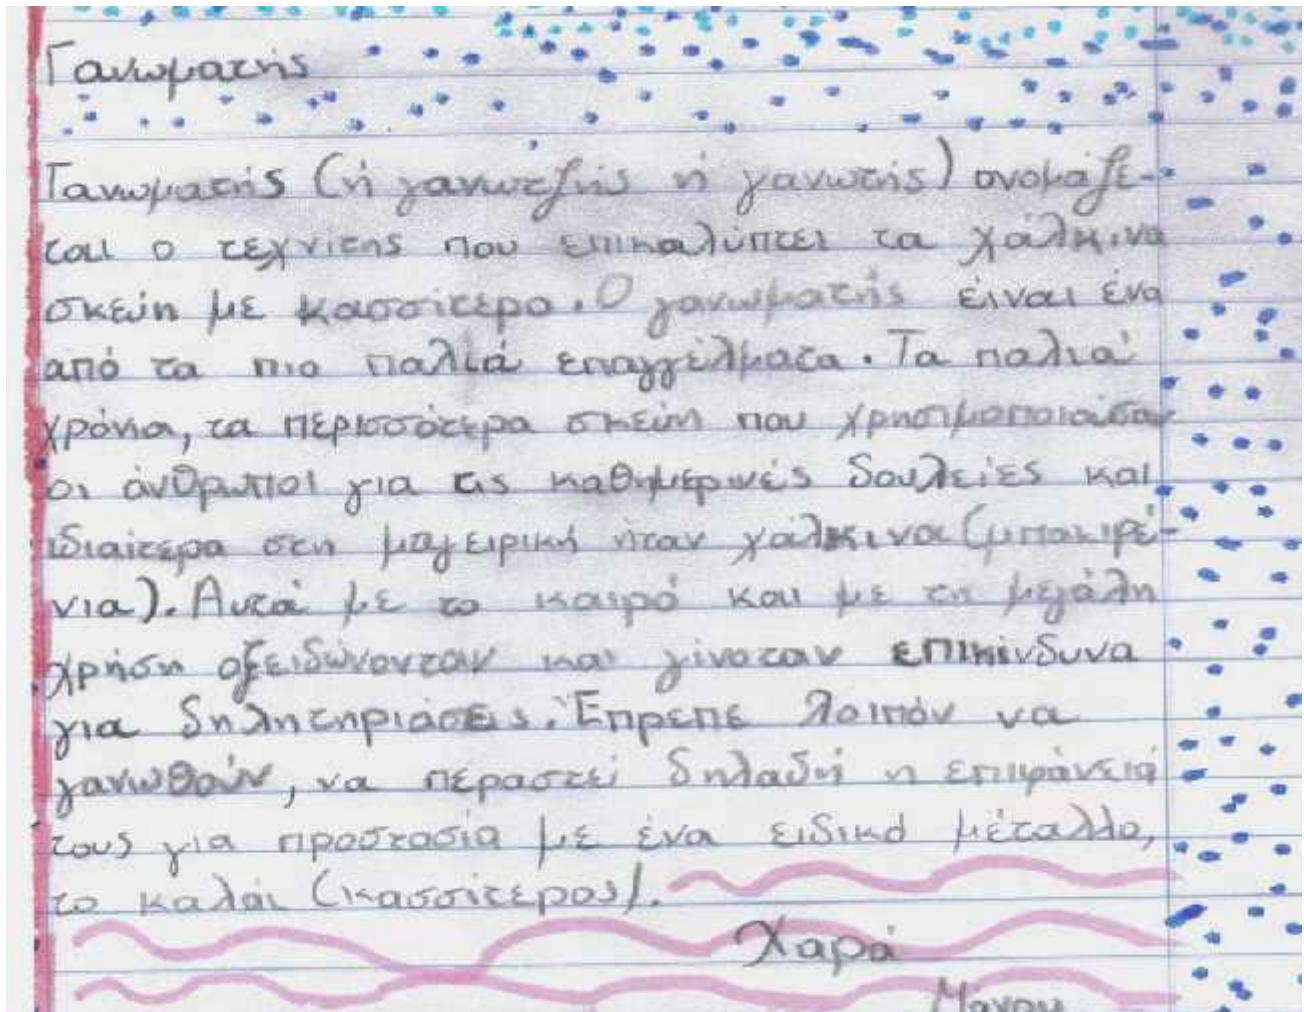 Γανωματής
Γανωματής (ή γανωτζής ή γανωτής) ονομάζε-
ται ο τεχνίτης που επικαλύπτει τα χάλκινα
σκεύη με κασσίτερο. Ο γανωματής είναι ένα
από τα πιο παλιά επαγγέλματα. Τα παλιά
χρόνια, τα περισσότερα σκεύη που χρησιμοποιούσαν
οι άνθρωποι για τις καθημερινές δουλείες και
ιδιαίτερα στη μαγειρική ήταν χάλκινα (μπακιρέ-
νια). Αυτά με το καιρό και με τη μεγάλη
χρήση οξειδώνονταν και γίνοταν επικίνδυνα
για δηλητηριάσεις. Έπρεπε λοιπόν να
γανωθούν, να περαστεί δηλαδή η επιφάνειά
τους για προστασία με ένα ειδικό μέταλλο,
το καλάι (κασσίτερος).
Χαρά